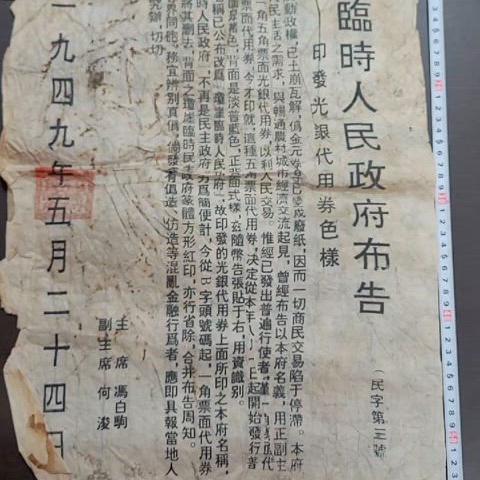 臨時人民政府布告
印發光銀代用券色樣
（民字第三號
動政權，已土崩瓦解，偽金元券早已變成廢紙，因而一切商民交易陷于停滯。本府
民主舌之需求，與暢通農村城市經濟交流起見，曾經布告以本府名義，用正副主
一角五角票面光銀代用券，以利人民交易。惟經已發出普遍行使者，僅一角票面代
票面代用券，今才印就，這種五角票面代用券，決定從本年 月 日起開始發行普
面是黃色，背面是淡普藍色，正背面式樣，茲隨幣告張貼于右，用資識別。
名稱已公布改爲「瓊崖臨時人民政府」，故印發的光銀代用券上面所印之本府名稱，
時人民政府」，不再是民主政府，爲簡便計，今從B字頭號碼起，一角票面代用券
將其刪去，背面之瓊崖臨時民主政府篆體方形紅印，亦行省除，合并布告周知。
界同胞，務宜辨別真僞，倘發有僞造、仿造等混亂金融行爲者，應即具報當地人
究辦，切切
主席 馮白駒
副主席 何浚
一九四九年五月二十四日